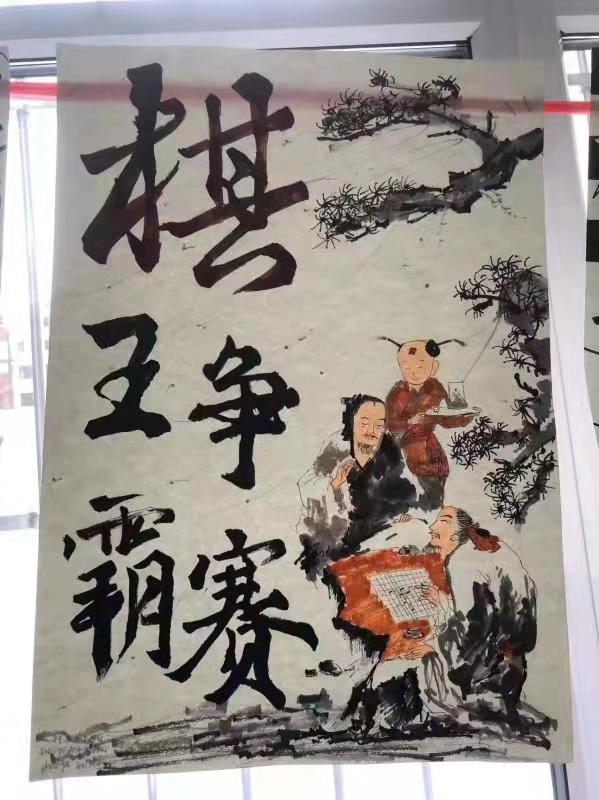 棋
王争
霸赛